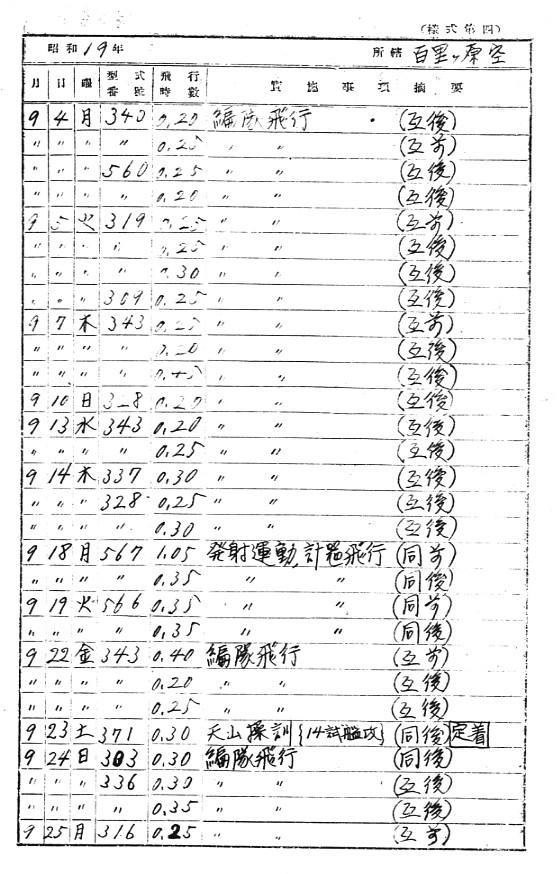 (樣式第四)
昭和19年 所轄 百里ヶ原空
月 日 曜 型式番號 飛行時數 實施事項 摘要
9 4 月 340 0.20 編隊飛行 (互後)
〃 〃 〃 〃 0.25 〃 〃 (互前)
〃 〃 〃 560 0.25 〃 〃 (互後)
〃 〃 〃 〃 0.20 〃 〃 (互後)
9 5 火 319 0.25 〃 〃 (互前)
〃 〃 〃 〃 0.25 〃 〃 (互後)
〃 〃 〃 〃 0.30 〃 〃 (互後)
〃 〃 〃 309 0.25 〃 〃 (互後)
9 7 木 343 0.25 〃 〃 (互前)
〃 〃 〃 〃 0.20 〃 〃 (互後)
〃 〃 〃 〃 0.45 〃 〃 (互後)
9 10 日 328 0.20 〃 〃 (互後)
9 13 水 343 0.20 〃 〃 (互後)
〃 〃 〃 〃 0.25 〃 〃 (互後)
9 14 木 337 0.30 〃 〃 (互後)
〃 〃 〃 328 0.25 〃 〃 (互後)
〃 〃 〃 〃 0.30 〃 〃 (互後)
9 18 月 567 1.05 発射運動、計器飛行 (同前)
〃 〃 〃 〃 0.35 〃 〃 (同後)
9 19 火 566 0.35 〃 〃 (同前)
〃 〃 〃 〃 0.35 〃 〃 (同後)
9 22 金 343 0.40 編隊飛行 (互前)
〃 〃 〃 〃 0.20 〃 〃 (互後)
〃 〃 〃 〃 0.25 〃 〃 (互後)
9 23 土 371 0.30 天山操訓{14試艦攻} (同後) 定着
9 24 日 303 0.30 編隊飛行 (同後)
〃 〃 〃 336 0.30 〃 〃 (互後)
〃 〃 〃 〃 0.35 〃 〃 (互後)
9 25 月 316 0.25 〃 〃 (互前)